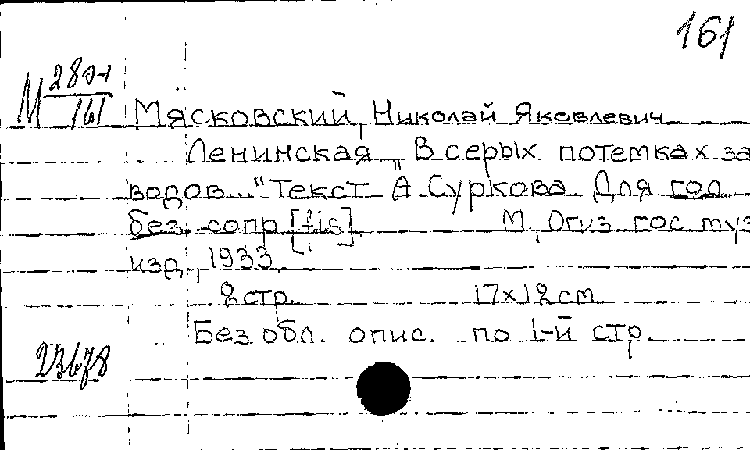 161
М 280-1
161
Мясковский, Николай Яковлевич
Ленинская „В серых потемках за
водов..." Текст А. Суркова. Для гол.
без сопр. [fis]. М., Огиз гос муз
изд., 1933.
2 стр. 17х12 см
Без обл. опис. по 1-й стр.
23678